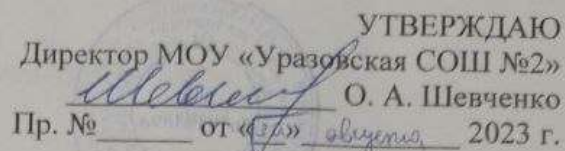 УТВЕРЖДАЮ
Директор МОУ «Уразовская СОШ №2»
О. А. Шевченко
Пр. №______ от «31» августа 2023 г.